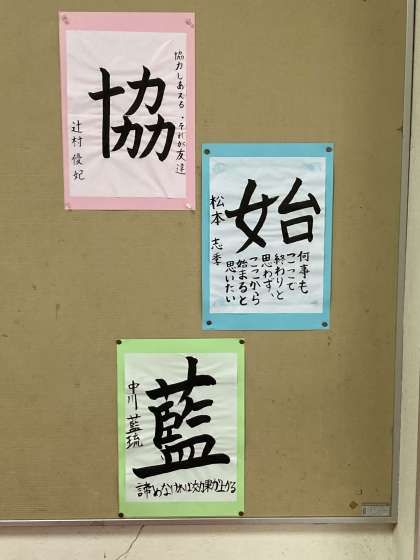 協力しあえる、それが友達
協
辻村 優妃
始
何事も
ここで
終わりと
思わず、
ここから
始まると
思いたい
松本 志季
藍
中川 藍琉
諦めなければ効果が上がる